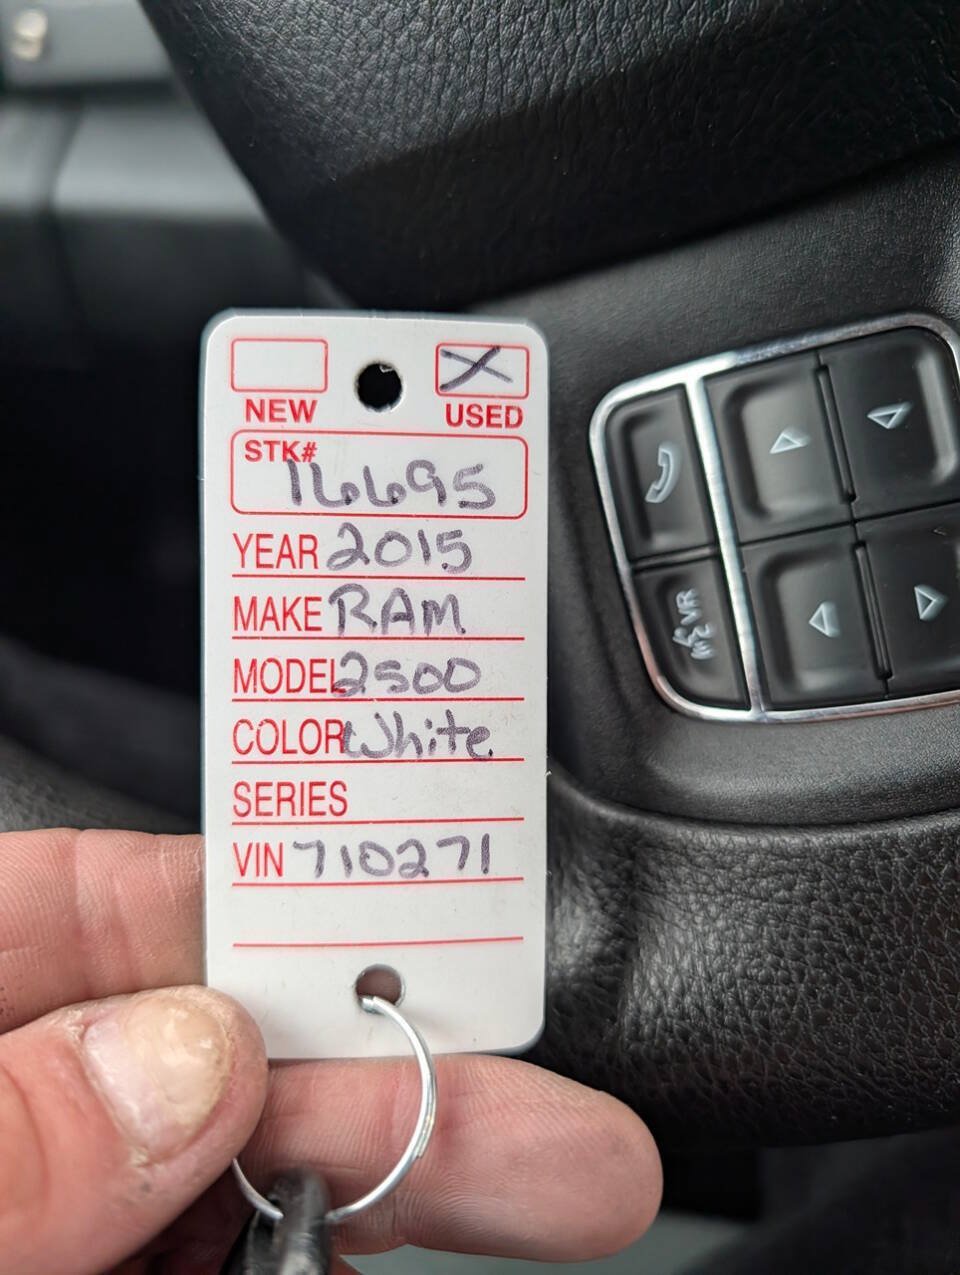 NEW USED
STK#
16695
YEAR 2015
MAKE RAM
MODEL 2500
COLOR White
SERIES
VIN 710271
VR